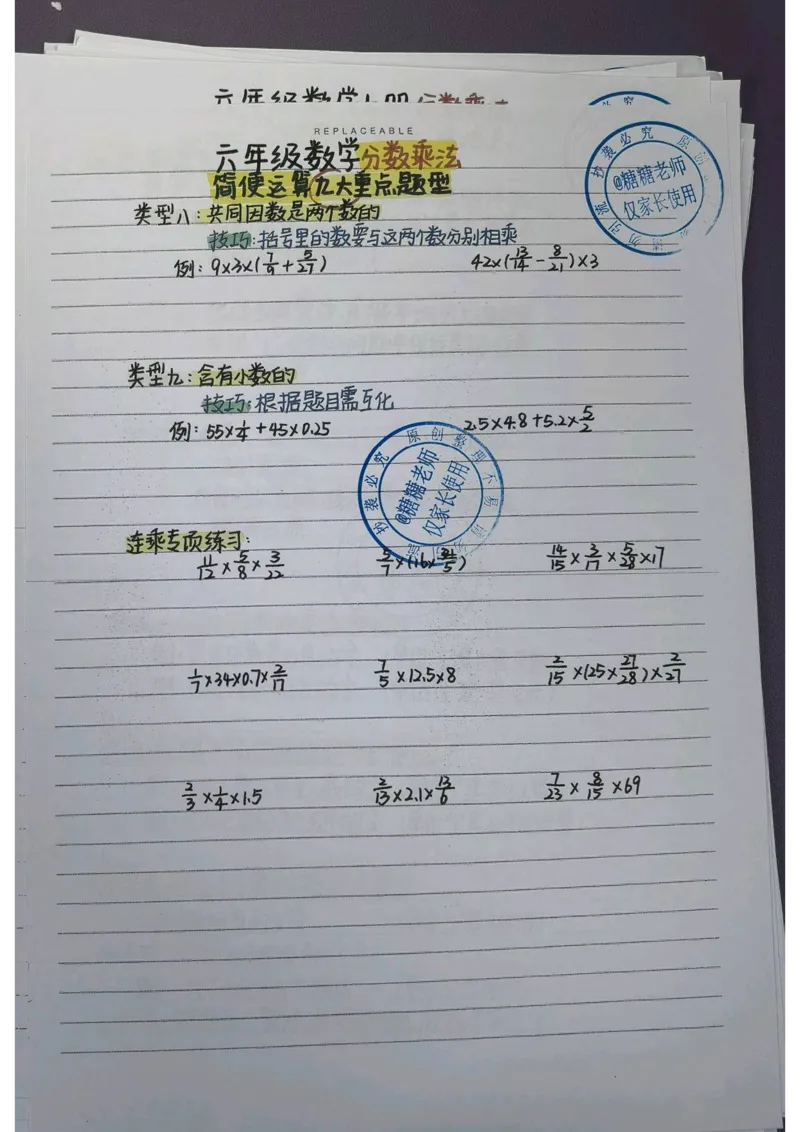 REPLACEABLE
六年级数学分数乘法
简便运算九大重点题型
类型八:共同因数是两个数的
技巧:括号里的数要与这两个数分别相乘
例: 9×3×(7/9 + 5/27) 42×(13/14 - 8/21)×3
类型九:含有小数的
技巧:根据题目需互化
例: 55×1/4 + 45×0.25 2.5×4.8+5.2×5/2
连乘专项练习:
11/12 × 5/8 × 3/22 5/7×(16×21/5) 14/15 × 3/17 × 5/28 ×17
1/7×34×0.7×2/17 7/5 ×12.5×8 2/15 ×(25×27/28)×2/27
2/3 ×1/4×1.5 2/13×2.1×13/6 7/23 × 8/15 ×69
@糖糖老师
仅家长使用
抄袭必究
原创整理不易
@糖糖老师
仅家长使用
抄袭必究